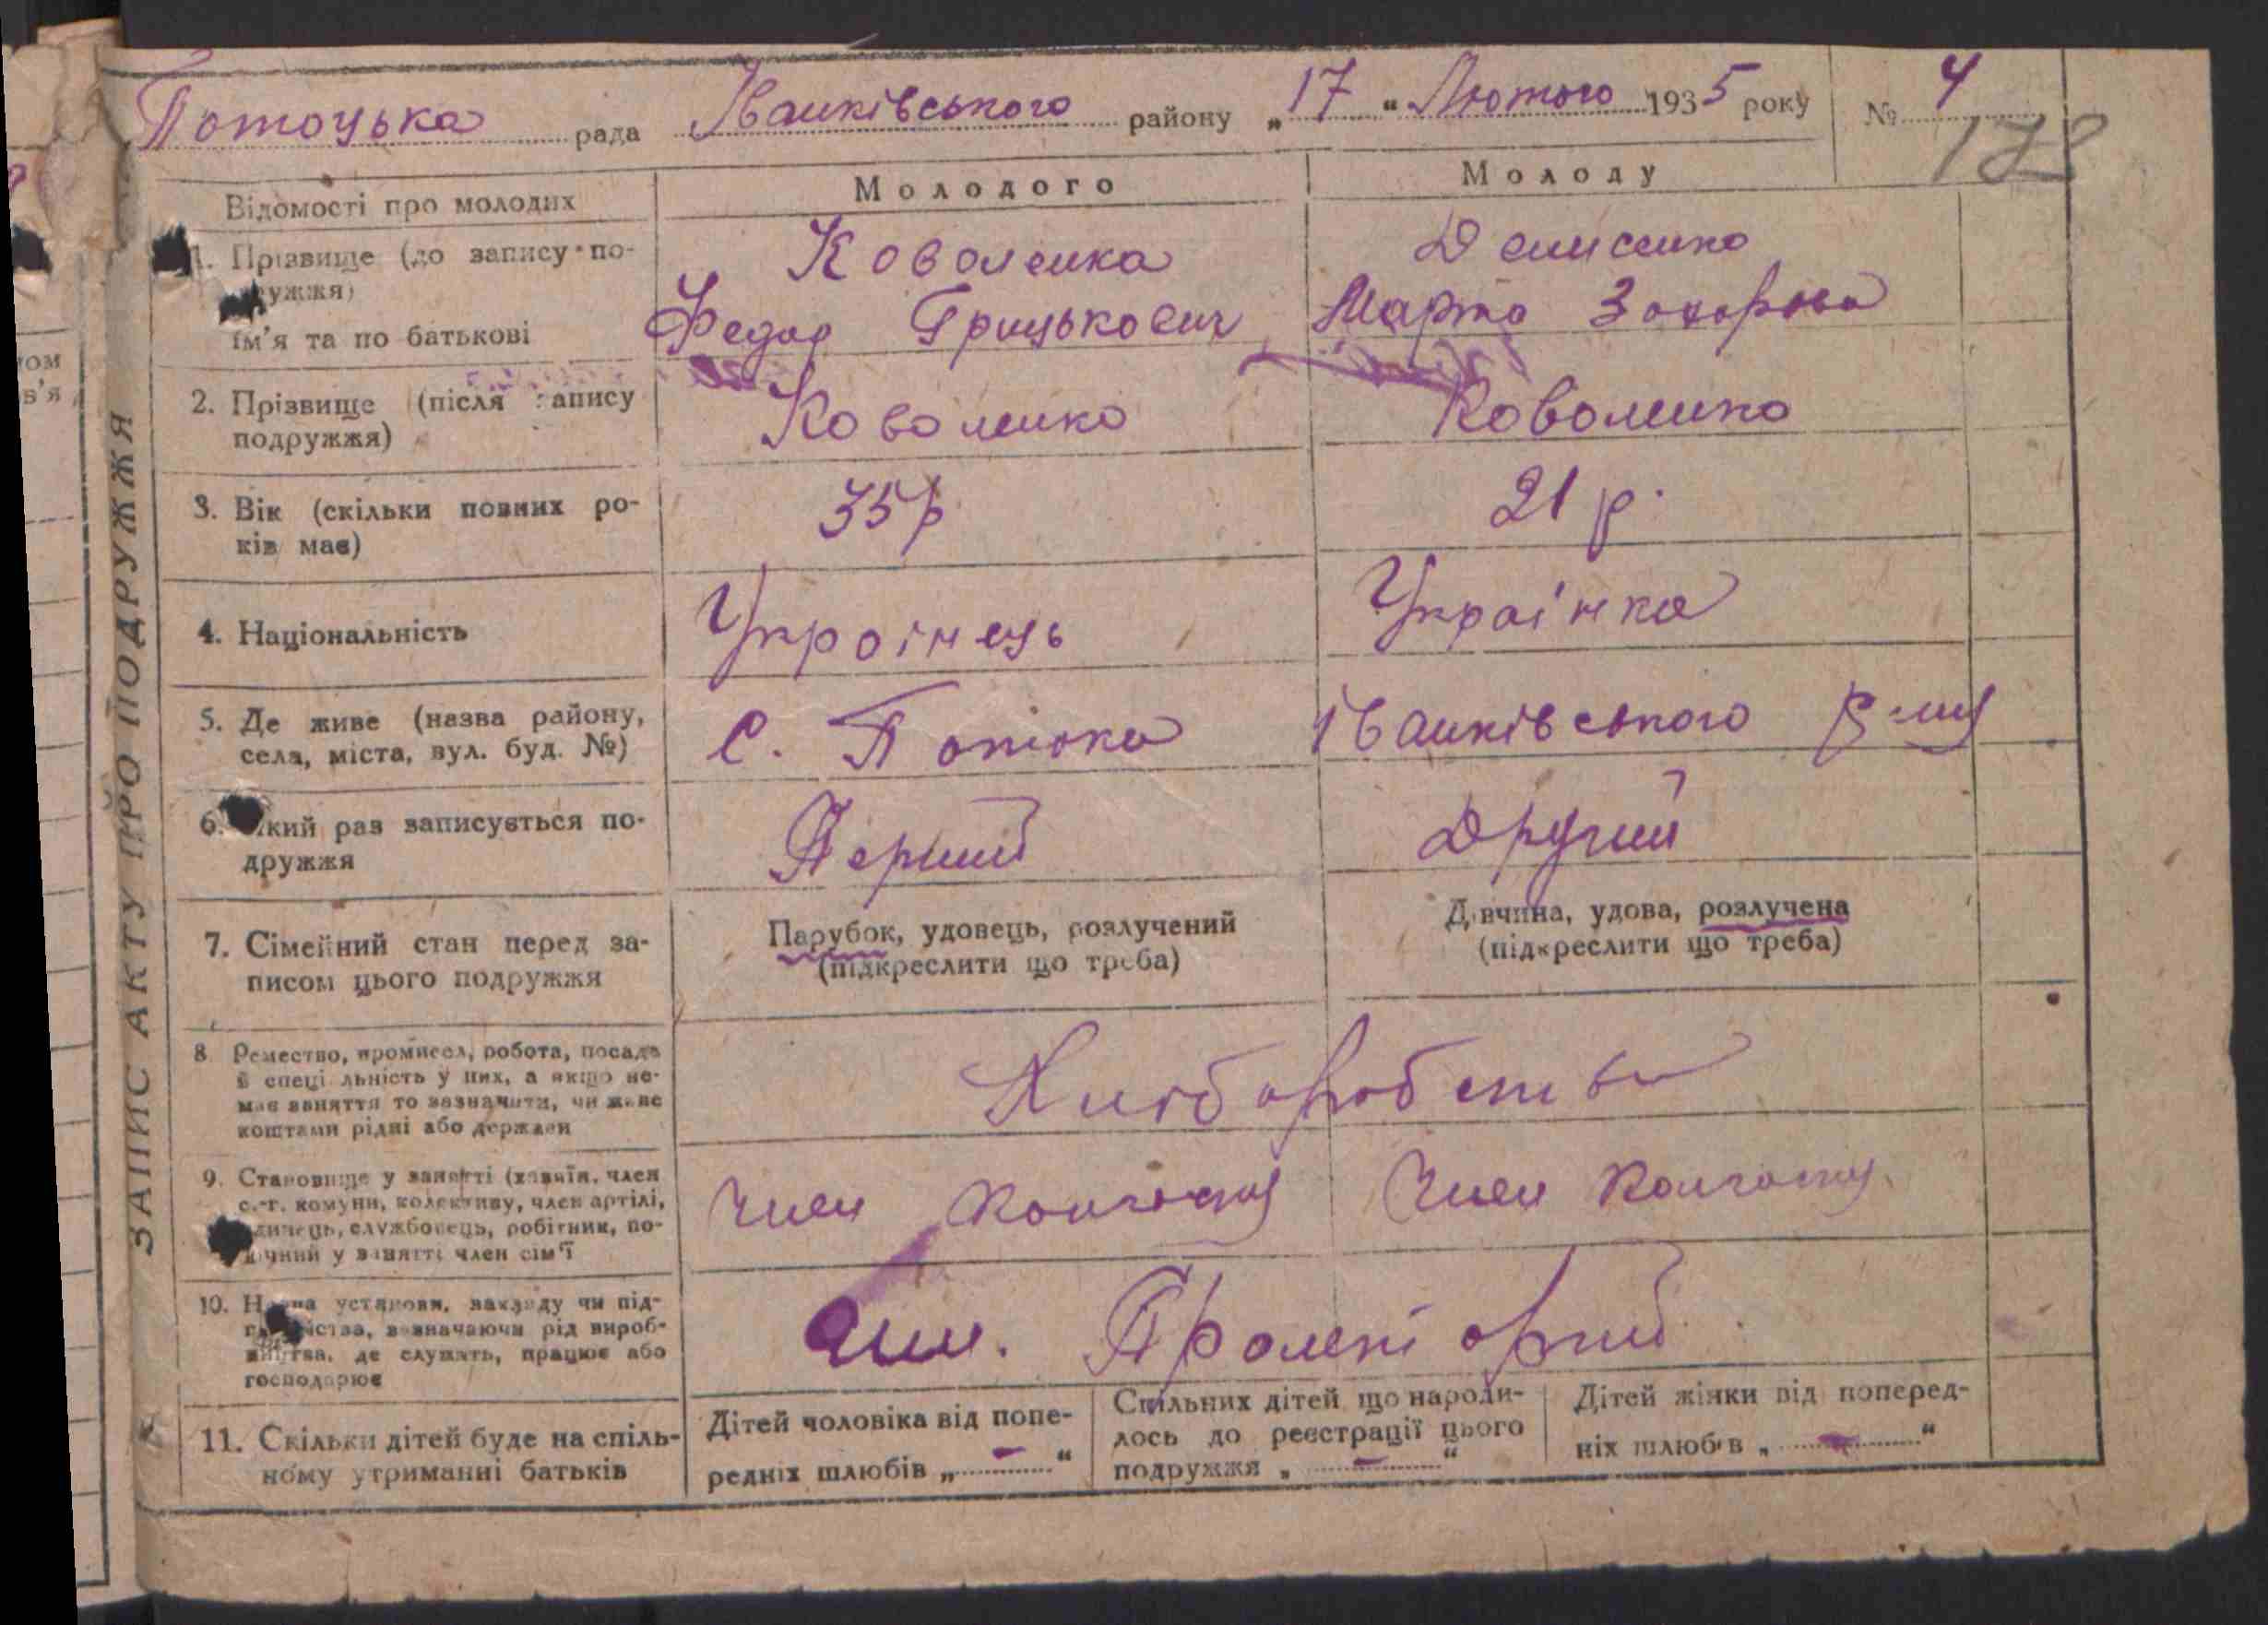 Потоцька рада Іванківського району „17“ Лютого 1935 року № 4
178
ЗАПИС АКТУ ПРО ПОДРУЖЖЯ
Відомості про молодих
Молодого
Молоду
1. Прізвище (до запису по-
дружжя)
ім'я та по батькові
Коволенка
Федор Грицькович
Денисенко
Марта Захорова
2. Прізвище (після запису
подружжя)
Коволенко
Коволенко
3. Вік (скільки повних ро-
ків має)
35 р
21 р.
4. Національність
Українець
Українка
5. Де живе (назва району,
села, міста, вул. буд. №)
с. Потоки Іванківського р-ну
6. Який раз записується по-
дружжя
Перший
Другий
7. Сімейний стан перед за-
писом цього подружжя
Парубок, удовець, розлучений
(підкреслити що треба)
Дівчина, удова, розлучена
(підкреслити що треба)
8. Ремество, промисел, робота, посада
й спеціальність у них, а якщо не-
має заняття то зазначити, чи живе
коштами рідні або держави
Хліборобство
9. Становище у занятті (хазяїн, член
с.-г. комуни, колективу, член артілі,
одинець, службовець, робітник, по-
мічний у занятті член сім'ї
Член Колгоспу
Член Колгоспу
10. Назва установи, закладу чи під-
приємства, зазначаючи рід вироб-
ництва, де служить, працює або
господарює
Пролетарий
11. Скільки дітей буде на спіль-
ному утриманні батьків
Дітей чоловіка від попе-
редніх шлюбів „ — “
Спільних дітей що народи-
лось до реєстрації цього
подружжя „ — “
Дітей жінки від поперед-
ніх шлюбів „ — “